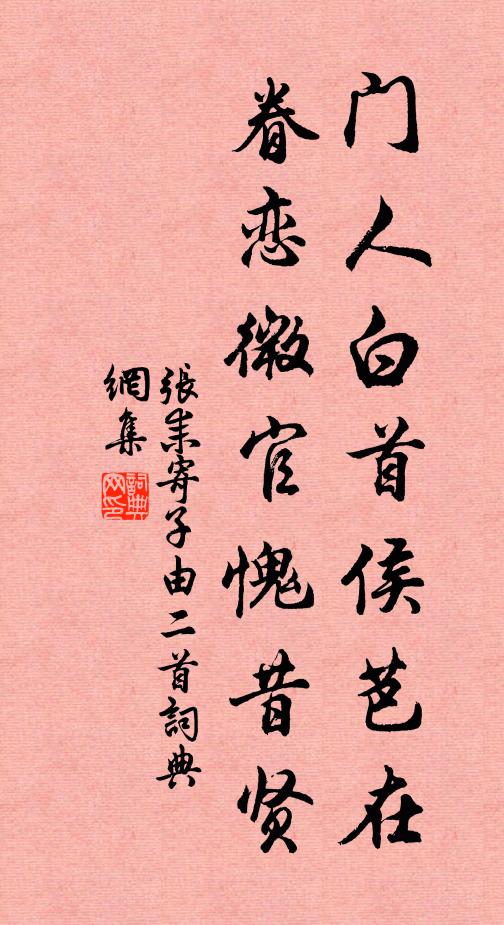 门人白首侯芭在
眷恋微官愧昔贤
張耒寄子由二首詞典
網集
詞典
网印